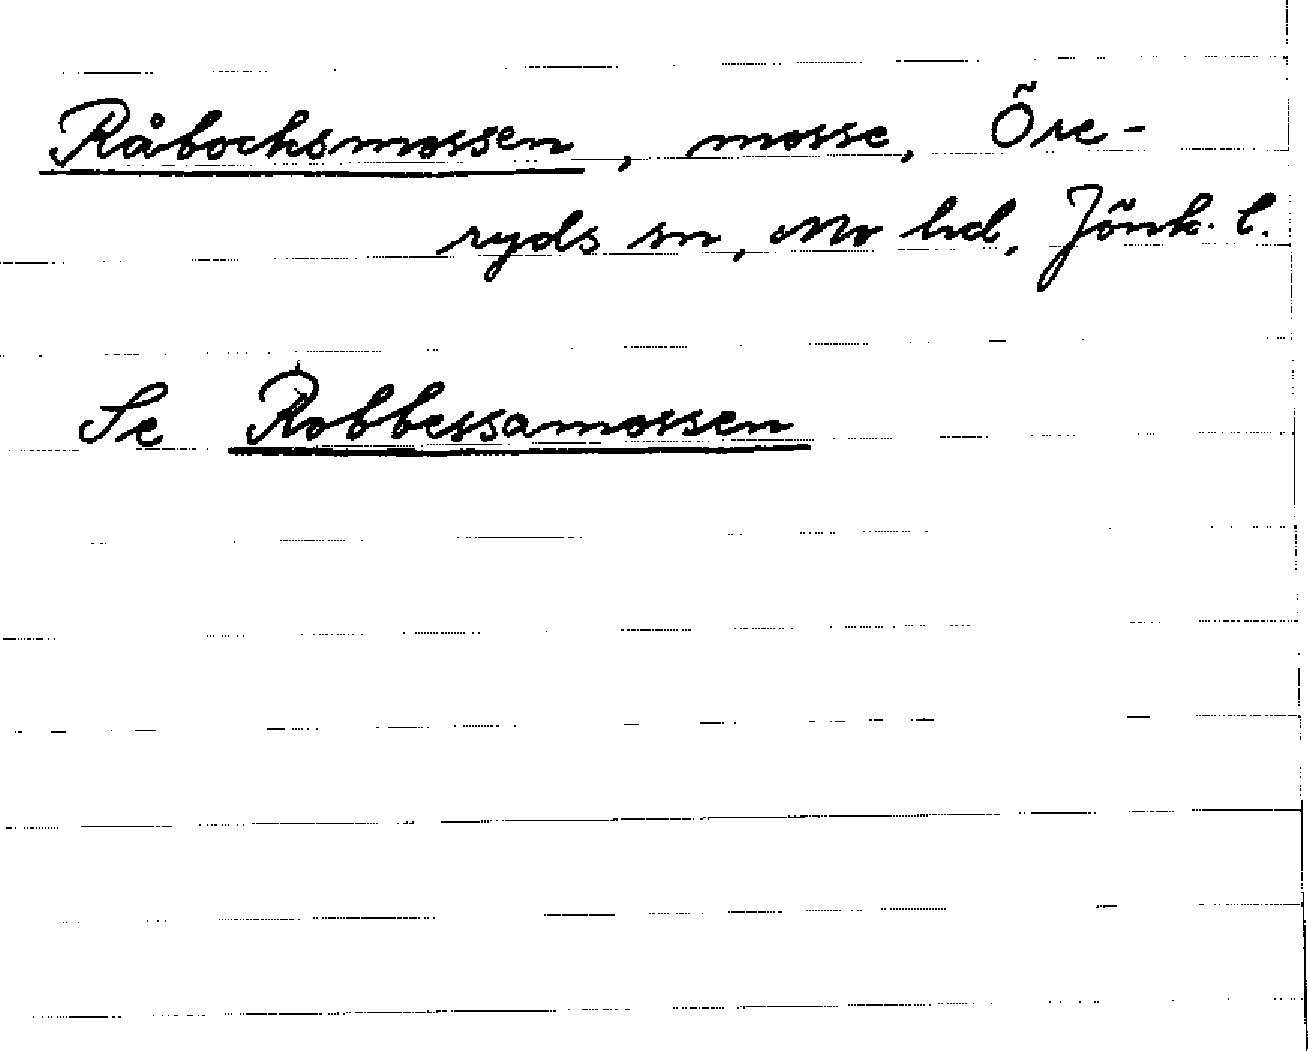 Råbocksmossen, mosse, Öre-
ryds sn, Mo hd, Jönk. l.
Se Robbessamossen